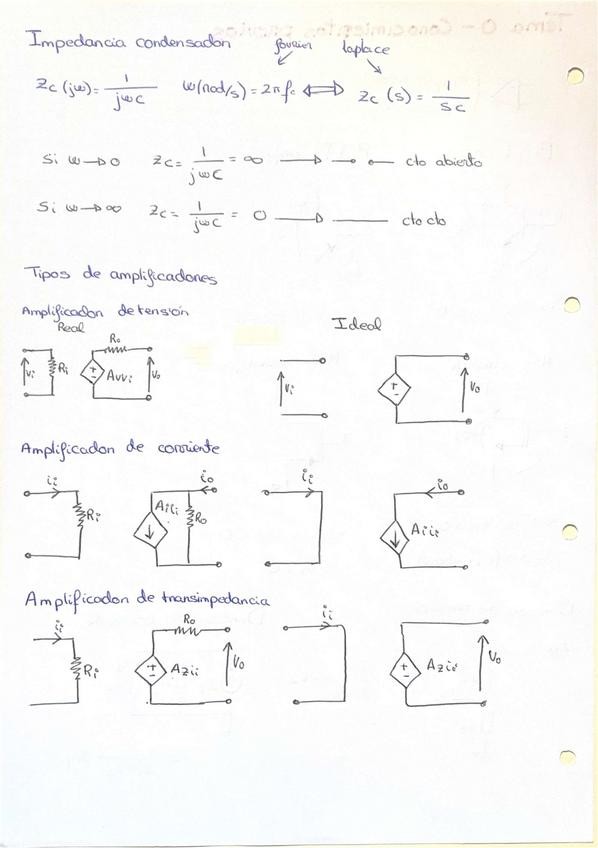 Tema 0 - Conocimientos previos
Impedancia condensador fourier laplace
Zc (jω) = 1/jωC ω(rad/s) = 2πf ⟺ Zc (s) = 1/sC
Si ω → 0 Zc = 1/jωC = ∞ → cto abierto
Si ω → ∞ Zc = 1/jωC = 0 → cto cto
Tipos de amplificadores
Amplificador de tensión
Real Ideal
Vi Ri Ro + - AvVi Vo Vi + - Vo
Amplificador de corriente
ii Ri Aiii Ro io ii Aiii io
Amplificador de transimpedancia
ii Ri + - Azii Ro Vo ii + - Azii Vo